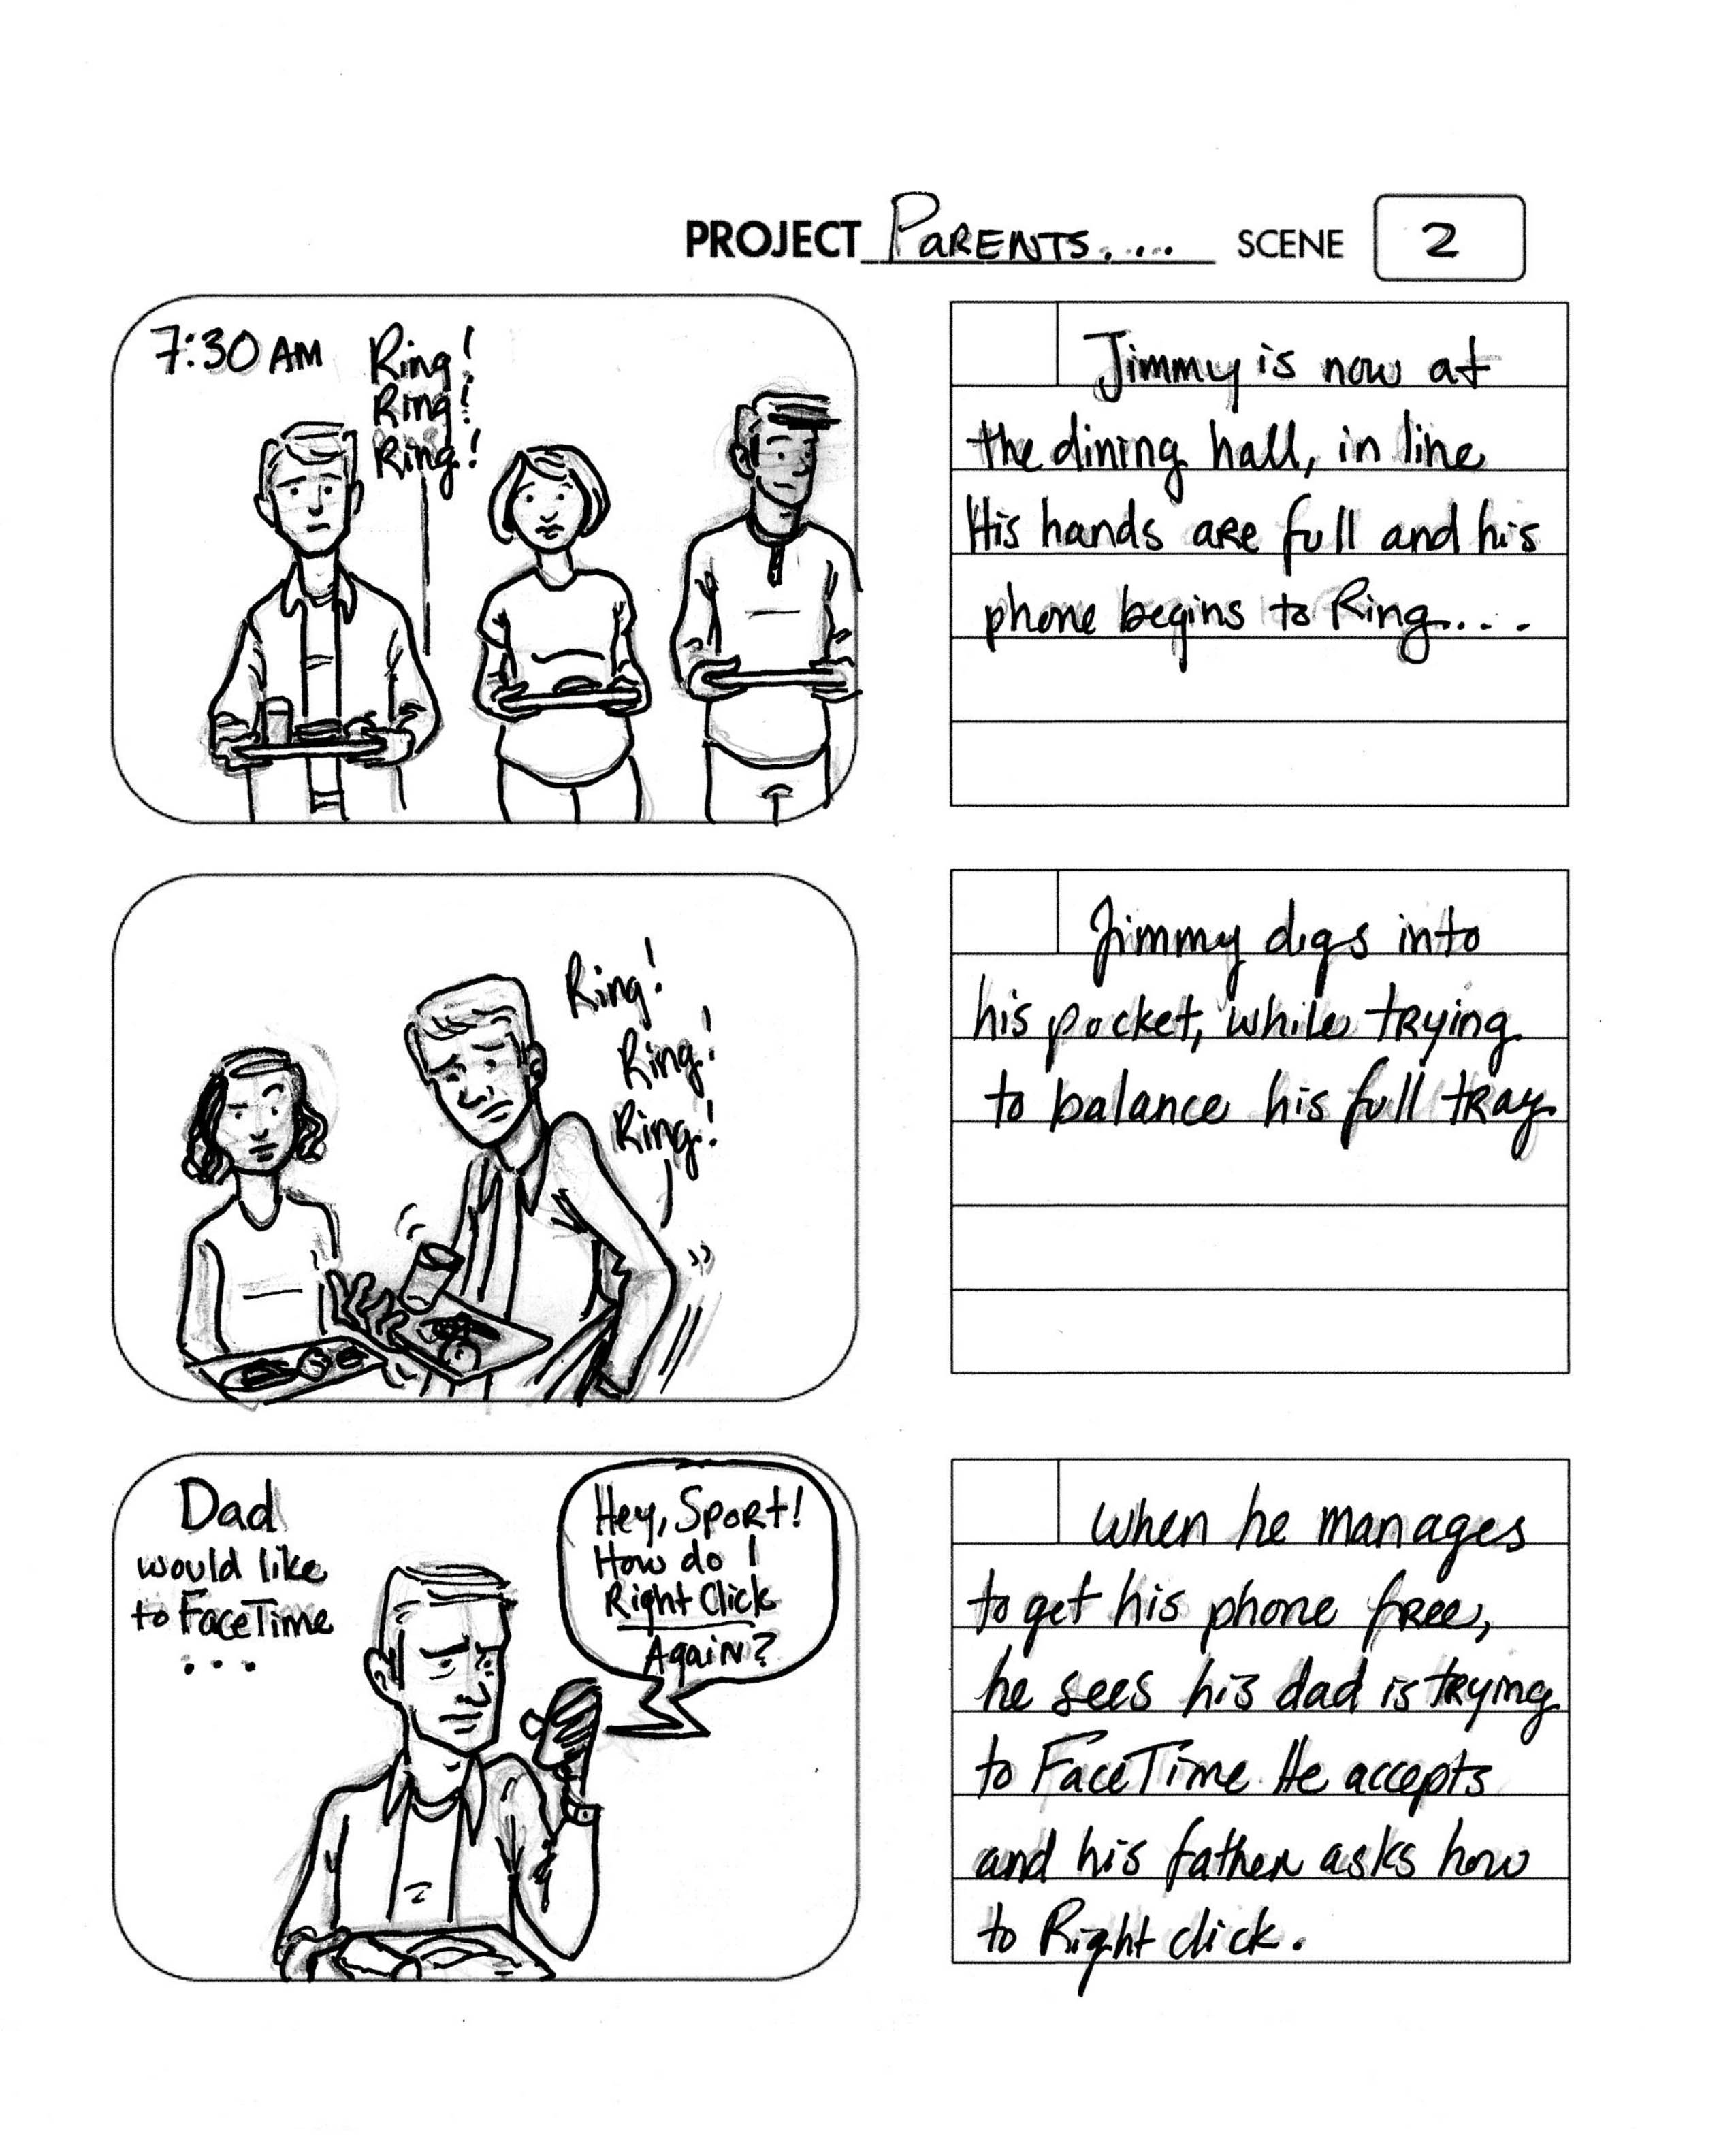 PROJECT PARENTS..... SCENE 2
7:30 AM
Ring!
Ring!
Ring!
Jimmy is now at
the dining hall, in line
His hands are full and his
phone begins to Ring....
Ring!
Ring!
Ring!
Jimmy digs into
his pocket, while trying
to balance his full tray.
Dad
would like
to FaceTime
...
Hey, Sport!
How do I
Right Click
Again?
When he manages
to get his phone free,
he sees his dad is trying
to FaceTime. He accepts
and his father asks how
to Right click.